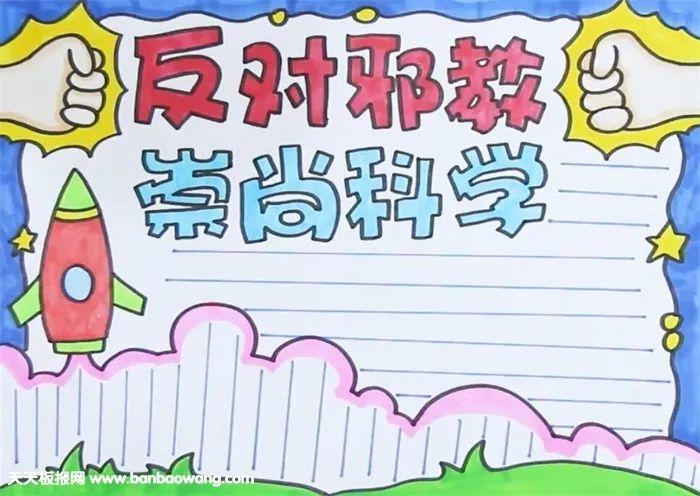 反对邪教
崇尚科学
天天板报网 www.banbaowang.com